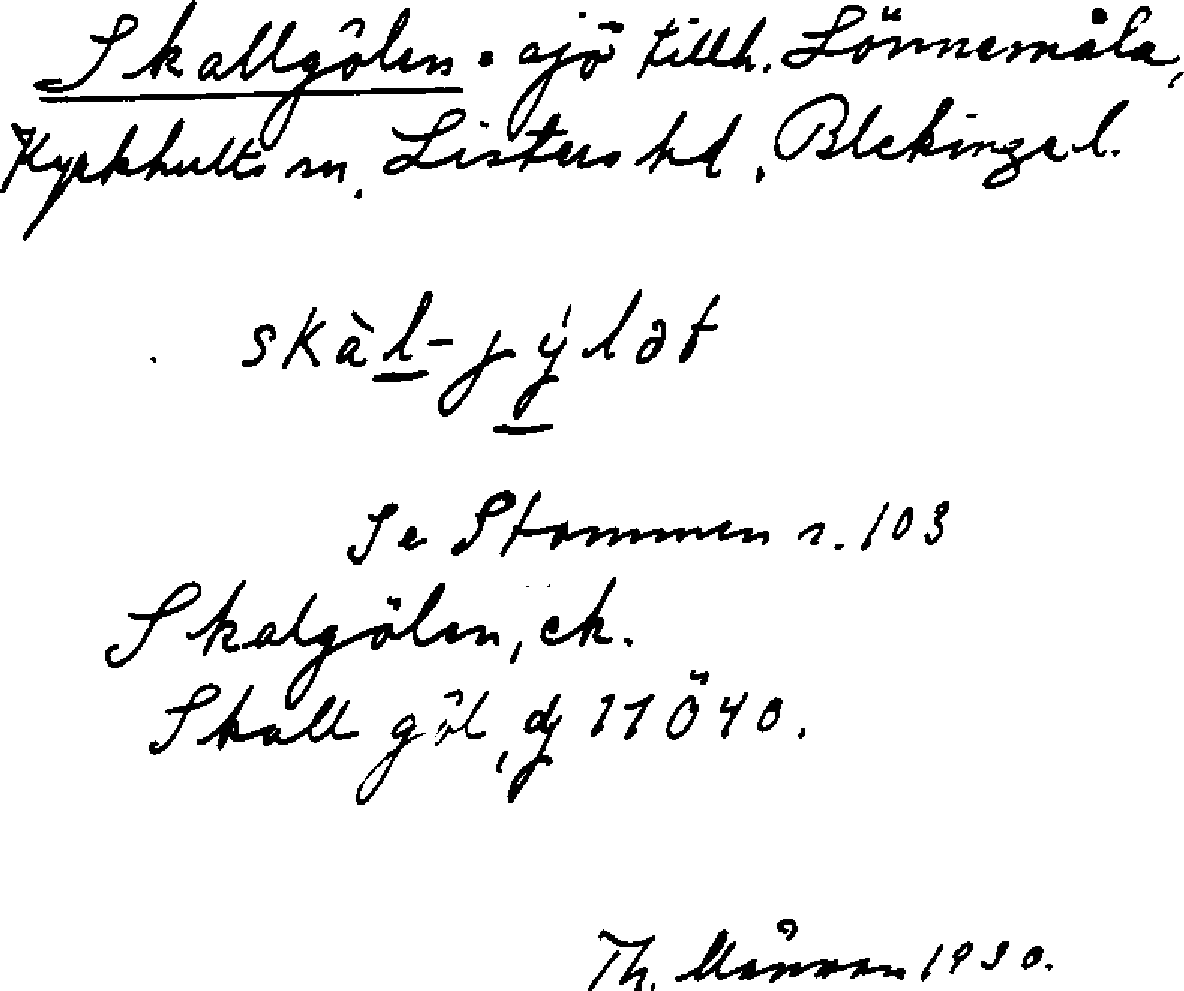 Skallgölen. sjö tillh. Lönnemåla,
Kyrkhults sn, Listers hd, Blekinge l.
skàl-jýlət
Se Stommen s. 103
Skalgölen, ek.
Skallgöl, dj 11Ö40.
Th. 1930.